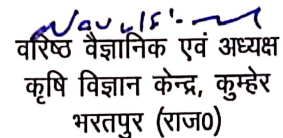 वरिष्ठ वैज्ञानिक एवं अध्यक्ष
कृषि विज्ञान केन्द्र, कुम्हेर
भरतपुर (राज0)